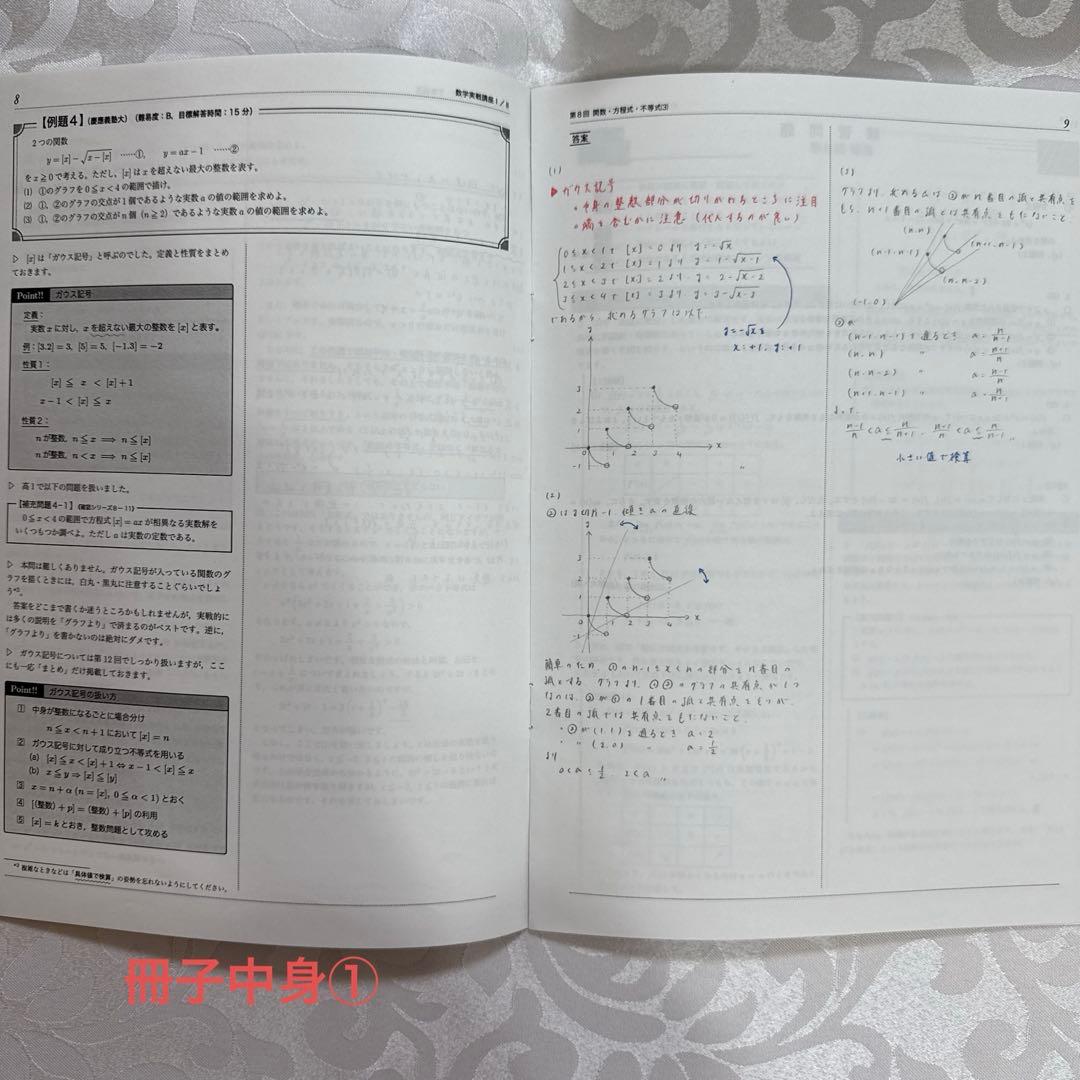 8
数学実戦講座Ⅰ/Ⅱ
【例題4】(慶應義塾大) (難易度：B、目標解答時間：15分)
2つの関数
y=[x]−√x−[x] ……①, y=ax−1 ……②
をx≧0で考える。ただし、[x]はxを超えない最大の整数を表す。
(1) ①のグラフを0≦x<4の範囲で描け。
(2) ①、②のグラフの交点が1個であるような実数aの値の範囲を求めよ。
(3) ①、②のグラフの交点がn個(n≧2)であるような実数aの値の範囲を求めよ。
▷ [x]は「ガウス記号」と呼ぶのでした。定義と性質をまとめ
ておきます。
Point!! ガウス記号
定義：
実数xに対し、xを超えない最大の整数を[x]と表す。
例：[3.2]=3, [5]=5, [−1.3]=−2
性質1：
[x]≦ x <[x]+1
x−1<[x]≦x
性質2：
nが整数, n≦x ⟹ n≦[x]
nが整数, n<x ⟹ n≦[x]
▷ 高1で以下の問題を扱いました。
【補充問題4-1】(確認シリーズ8-11)
0≦x<4の範囲で方程式[x]=axが相異なる実数解を
いくつもつか調べよ。ただしaは実数の定数である。
▷ 本問は難しくありません。ガウス記号が入っている関数のグ
ラフを描くときには、白丸・黒丸に注意することぐらいでしょ
う*3。
答案をどこまで書くか迷うところかもしれませんが、実戦的に
は多くの説明を「グラフより」で済ますのがベストです。逆に、
「グラフより」を書かないのは絶対にダメです。
▷ ガウス記号については第12回でしっかり扱いますが、ここ
にも一応「まとめ」だけ掲載しておきます。
Point!! ガウス記号の扱い方
1 中身が整数になるごとに場合分け
n≦x<n+1において[x]=n
2 ガウス記号に対して成り立つ不等式を用いる
(a) [x]≦x<[x]+1⇔x−1<[x]≦x
(b) x≦y⇒[x]≦[y]
3 x=n+α(n=[x], 0≦α<1)とおく
4 [(整数)+p]=(整数)+[p]の利用
5 [x]=kとおき、整数問題として攻める
*3 複雑なときなどは「具体値で検算」の姿勢を忘れないようにしてください。
第8回 関数・方程式・不等式(3)
9
答案
(1)
▶ガウス記号
。中身の整数部分が切りかわるところに注目
。端を含むかに注意(代入するのが良い)
0≦x<1で [x]=0より y=−√x
1≦x<2で [x]=1より y=1−√x−1
2≦x<3で [x]=2より y=2−√x−2
3≦x<4で [x]=3より y=3−√x−3
であるから、求めるグラフは以下
y=−√xを
x=+1, y=+1
y
3
2
1
0
−1
1 2 3 4 x
(2)
②はy切片−1 傾きaの直線
y
3
2
1
0
−1
1 2 3 4 x
簡単のため、①のn−1≦x<nの部分をn番目の
弧とする。グラフより、①②のグラフの共有点が1つ
なのは、②が①の1番目の弧と共有点をもつが、
2番目の弧では共有点をもたないこと
・②が(1,1)を通るとき a=2
・ 〃 (2,0) 〃 a=1/2
より
0<a≦1/2, 2<a 〃
(3)
グラフより、求めるaは②がn番目の弧と共有点を
もち、n+1番目の弧とは共有点をもたないこと
(n,n)
(n−1,n−1)
(n+1,n−1)
(n,n−2)
(−1,0)
②が
(n−1,n−1)を通るとき a=n/n−1
(n,n) 〃 a=n+1/n
(n,n−2) 〃 a=n−1/n
(n+1,n−1) 〃 a=n/n+1
よって
n−1/n<a≦n/n+1, n+1/n<a≦n/n−1 〃
小さい値で検算
冊子中身①